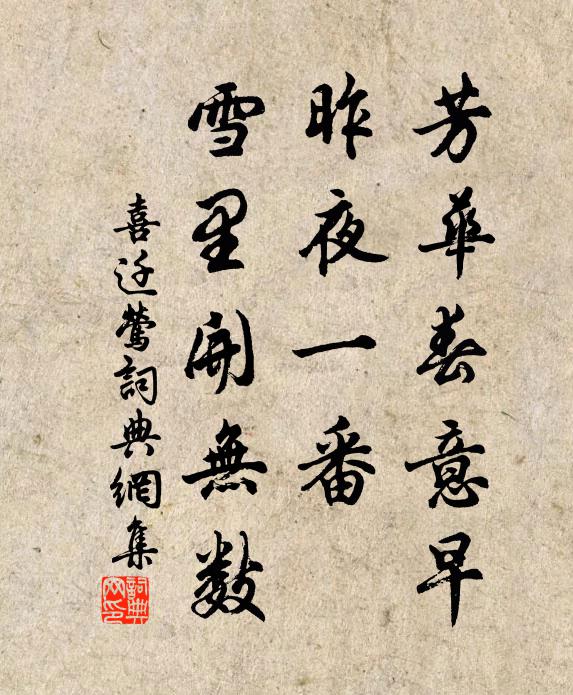 芳華春意早
昨夜一番
雪里開無數
喜迁鶯詞典網集
詞典网印